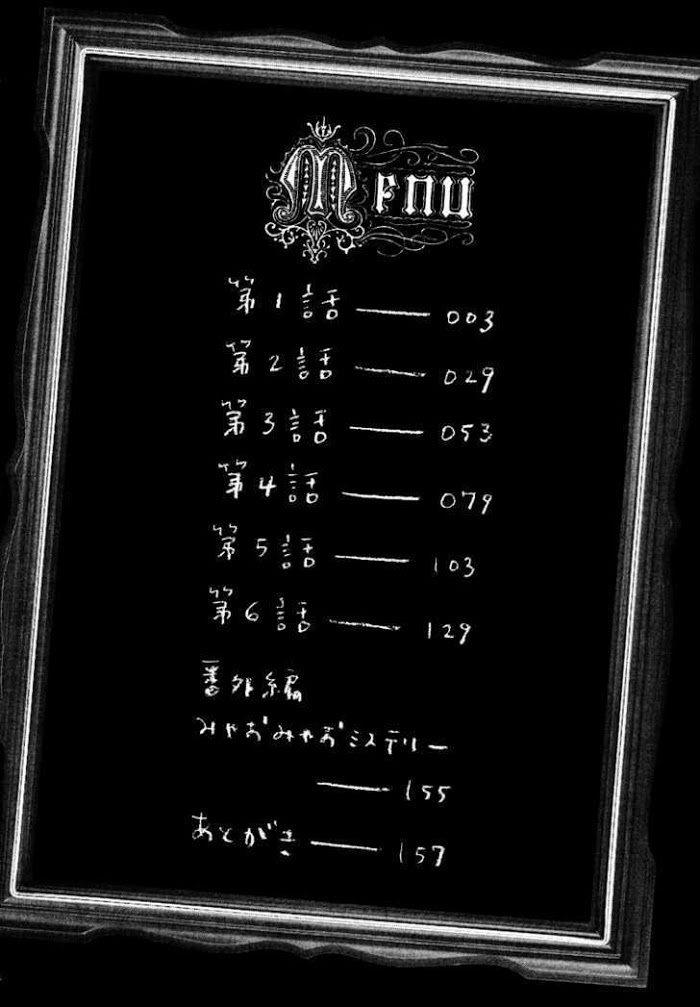 Menu
第1話 ―― 003
第2話 ―― 029
第3話 ―― 053
第4話 ―― 079
第5話 ―― 103
第6話 ―― 129
番外編
みやおみやおミステリー
―― 155
あとがき ―― 157